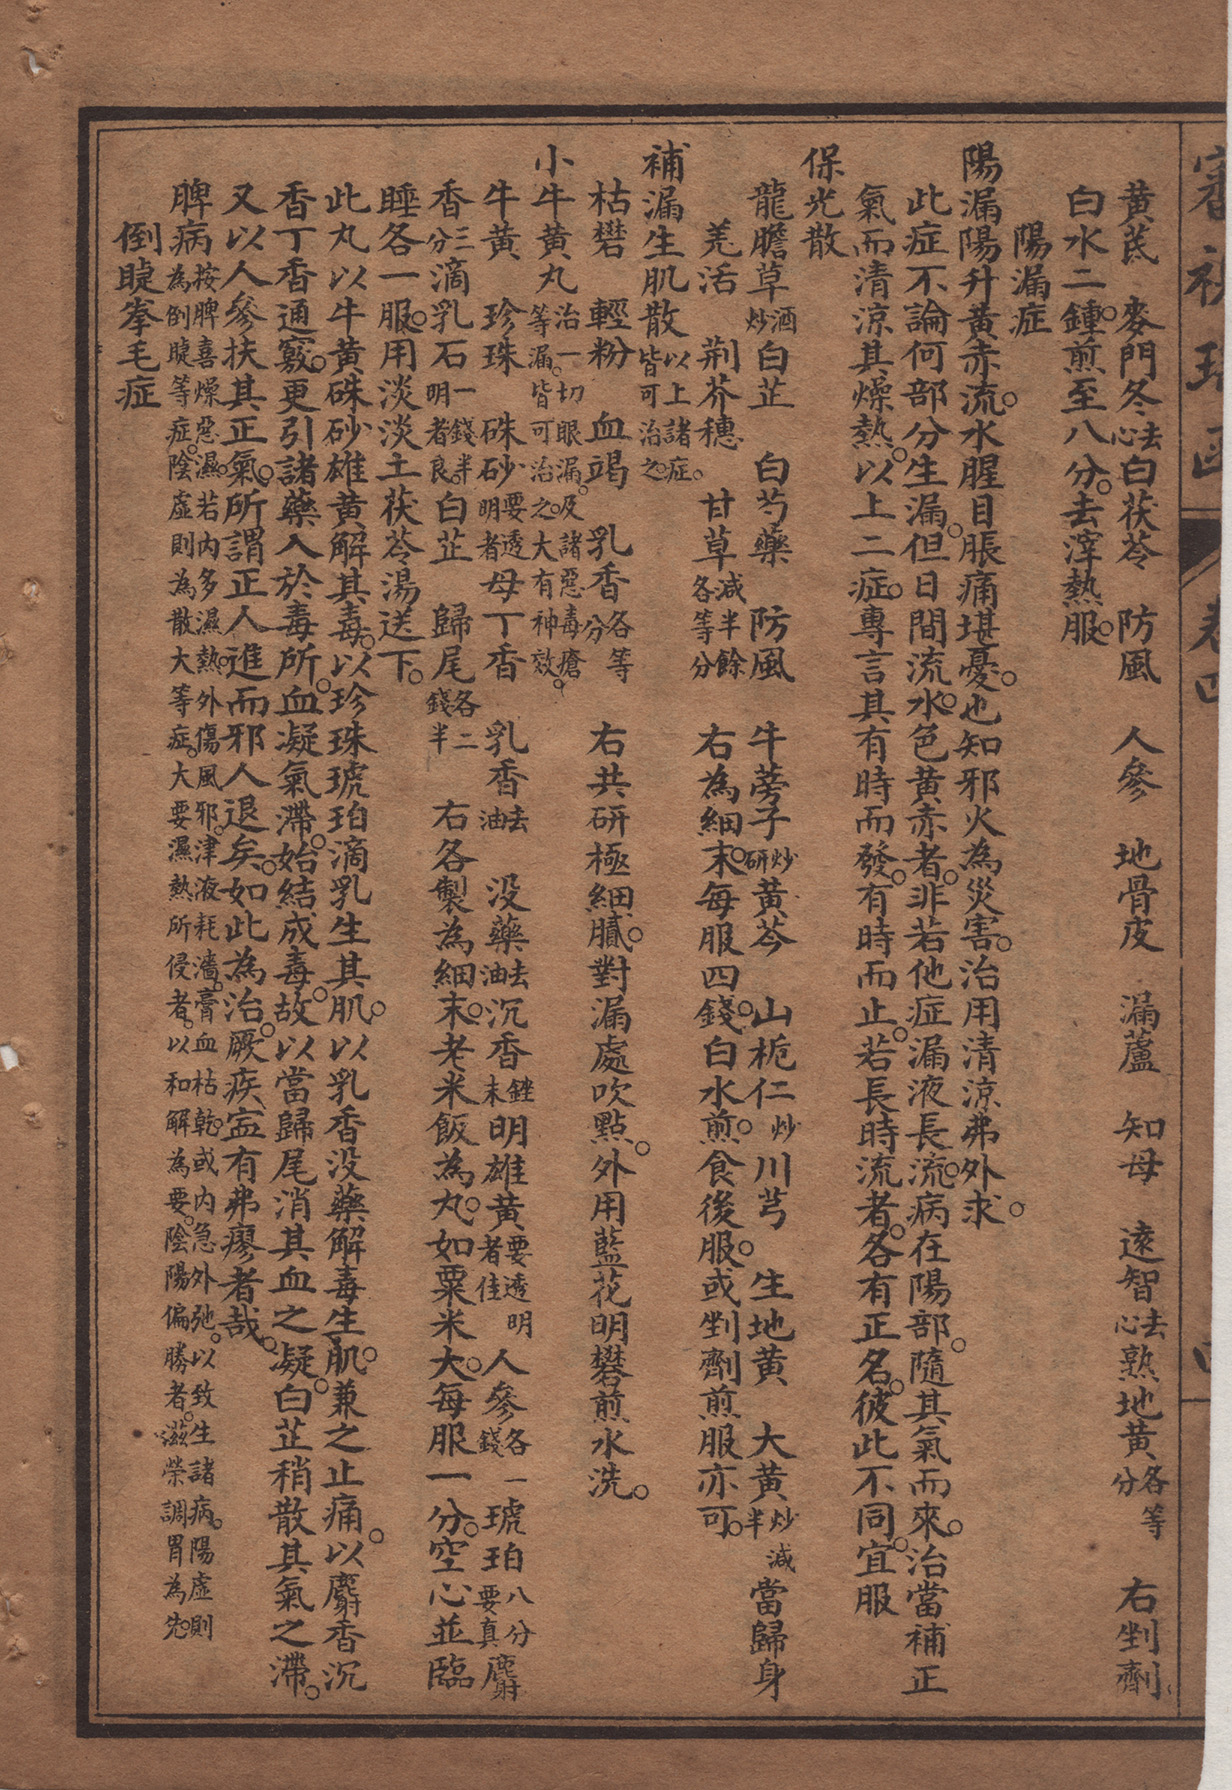 黃芪　麥門冬去心白茯苓　防風　人參　地骨皮　漏蘆　知母　遠智去心熟地黃各等分　右剉劑
白水二鍾。煎至八分。去滓熱服。
陽漏症
陽漏陽升黃赤流。水腥目脹痛堪憂。也知邪火為災害。治用清涼弗外求。
此症不論何部分生漏。但日間流水。色黃赤者。非若他症漏液長流。病在陽部。隨其氣而來。治當補正
氣而清涼其燥熱。以上二症。專言其有時而發。有時而止。若長時流者。各有正名。彼此不同。宜服
保光散
龍膽草酒炒白芷　白芍藥　防風　牛蒡子炒研黃芩　山梔仁炒川芎　生地黃　大黃炒減半當歸身
羌活　荆芥穗　甘草減半餘各等分　右為細末。每服四錢。白水煎。食後服。或剉劑煎服亦可。
補漏生肌散以上諸症。皆可治之。
枯礬　輕粉　血竭　乳香各等分　右共研極細膩。對漏處吹點。外用藍花明礬煎水洗。
小牛黃丸治一切眼漏。及諸惡毒瘡等漏。皆可治之。大有神效。
牛黃　珍珠　硃砂要透明者母丁香　乳香去油　没藥去油沉香錯末明雄黃要透明者佳　人參各一錢琥珀八分要真麝
香三分滴乳石一錢半明者良。白芷　歸尾各二錢半　右各製為細末。老米飯為丸。如粟米大。每服一分。空心並臨
睡各一服。用淡淡土茯苓湯送下。
此丸以牛黃硃砂雄黃解其毒。以珍珠琥珀滴乳生其肌。以乳香没藥解毒生肌。兼之止痛。以麝香沉
香丁香通竅。更引諸藥入於毒所。血凝氣滯。始結成毒。故以當歸尾消其血之凝。白芷稍散其氣之滯。
又以人參扶其正氣。所謂正人進而邪人退矣。如此為治。厥疾寍有弗瘳者哉。
脾病按脾喜燥惡濕。若內多濕熱。外傷風邪。津液耗濇。膏血枯乾。或內急外弛。以致生諸病。陽虛則為倒睫等症。陰虛則為散大等症。大要濕熱所侵者。以和解為要。陰陽偏勝者。滋榮調胃為先。
倒睫拳毛症